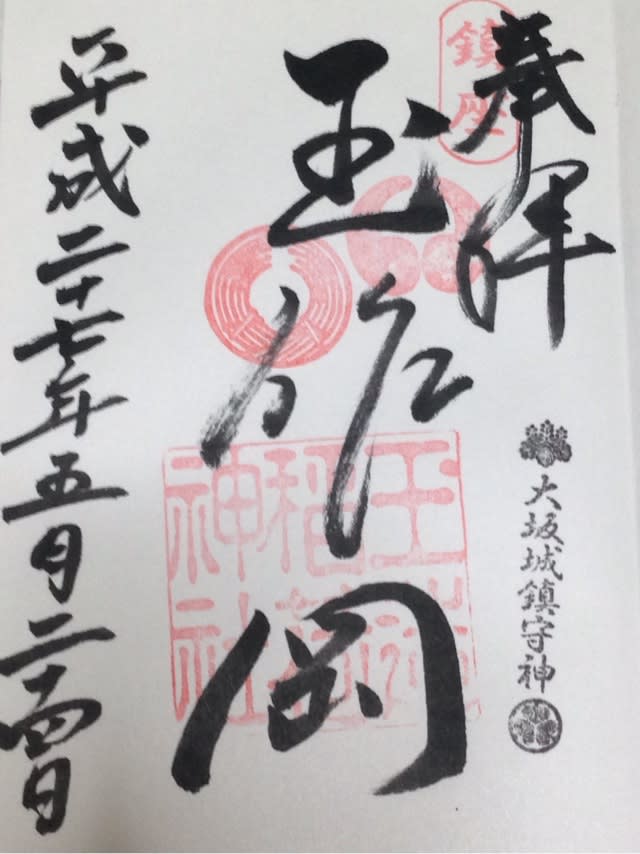 奉拝
鎮座
大坂城鎮守神
玉作岡
玉造
稲荷
神社
平成二十七年五月二十四日